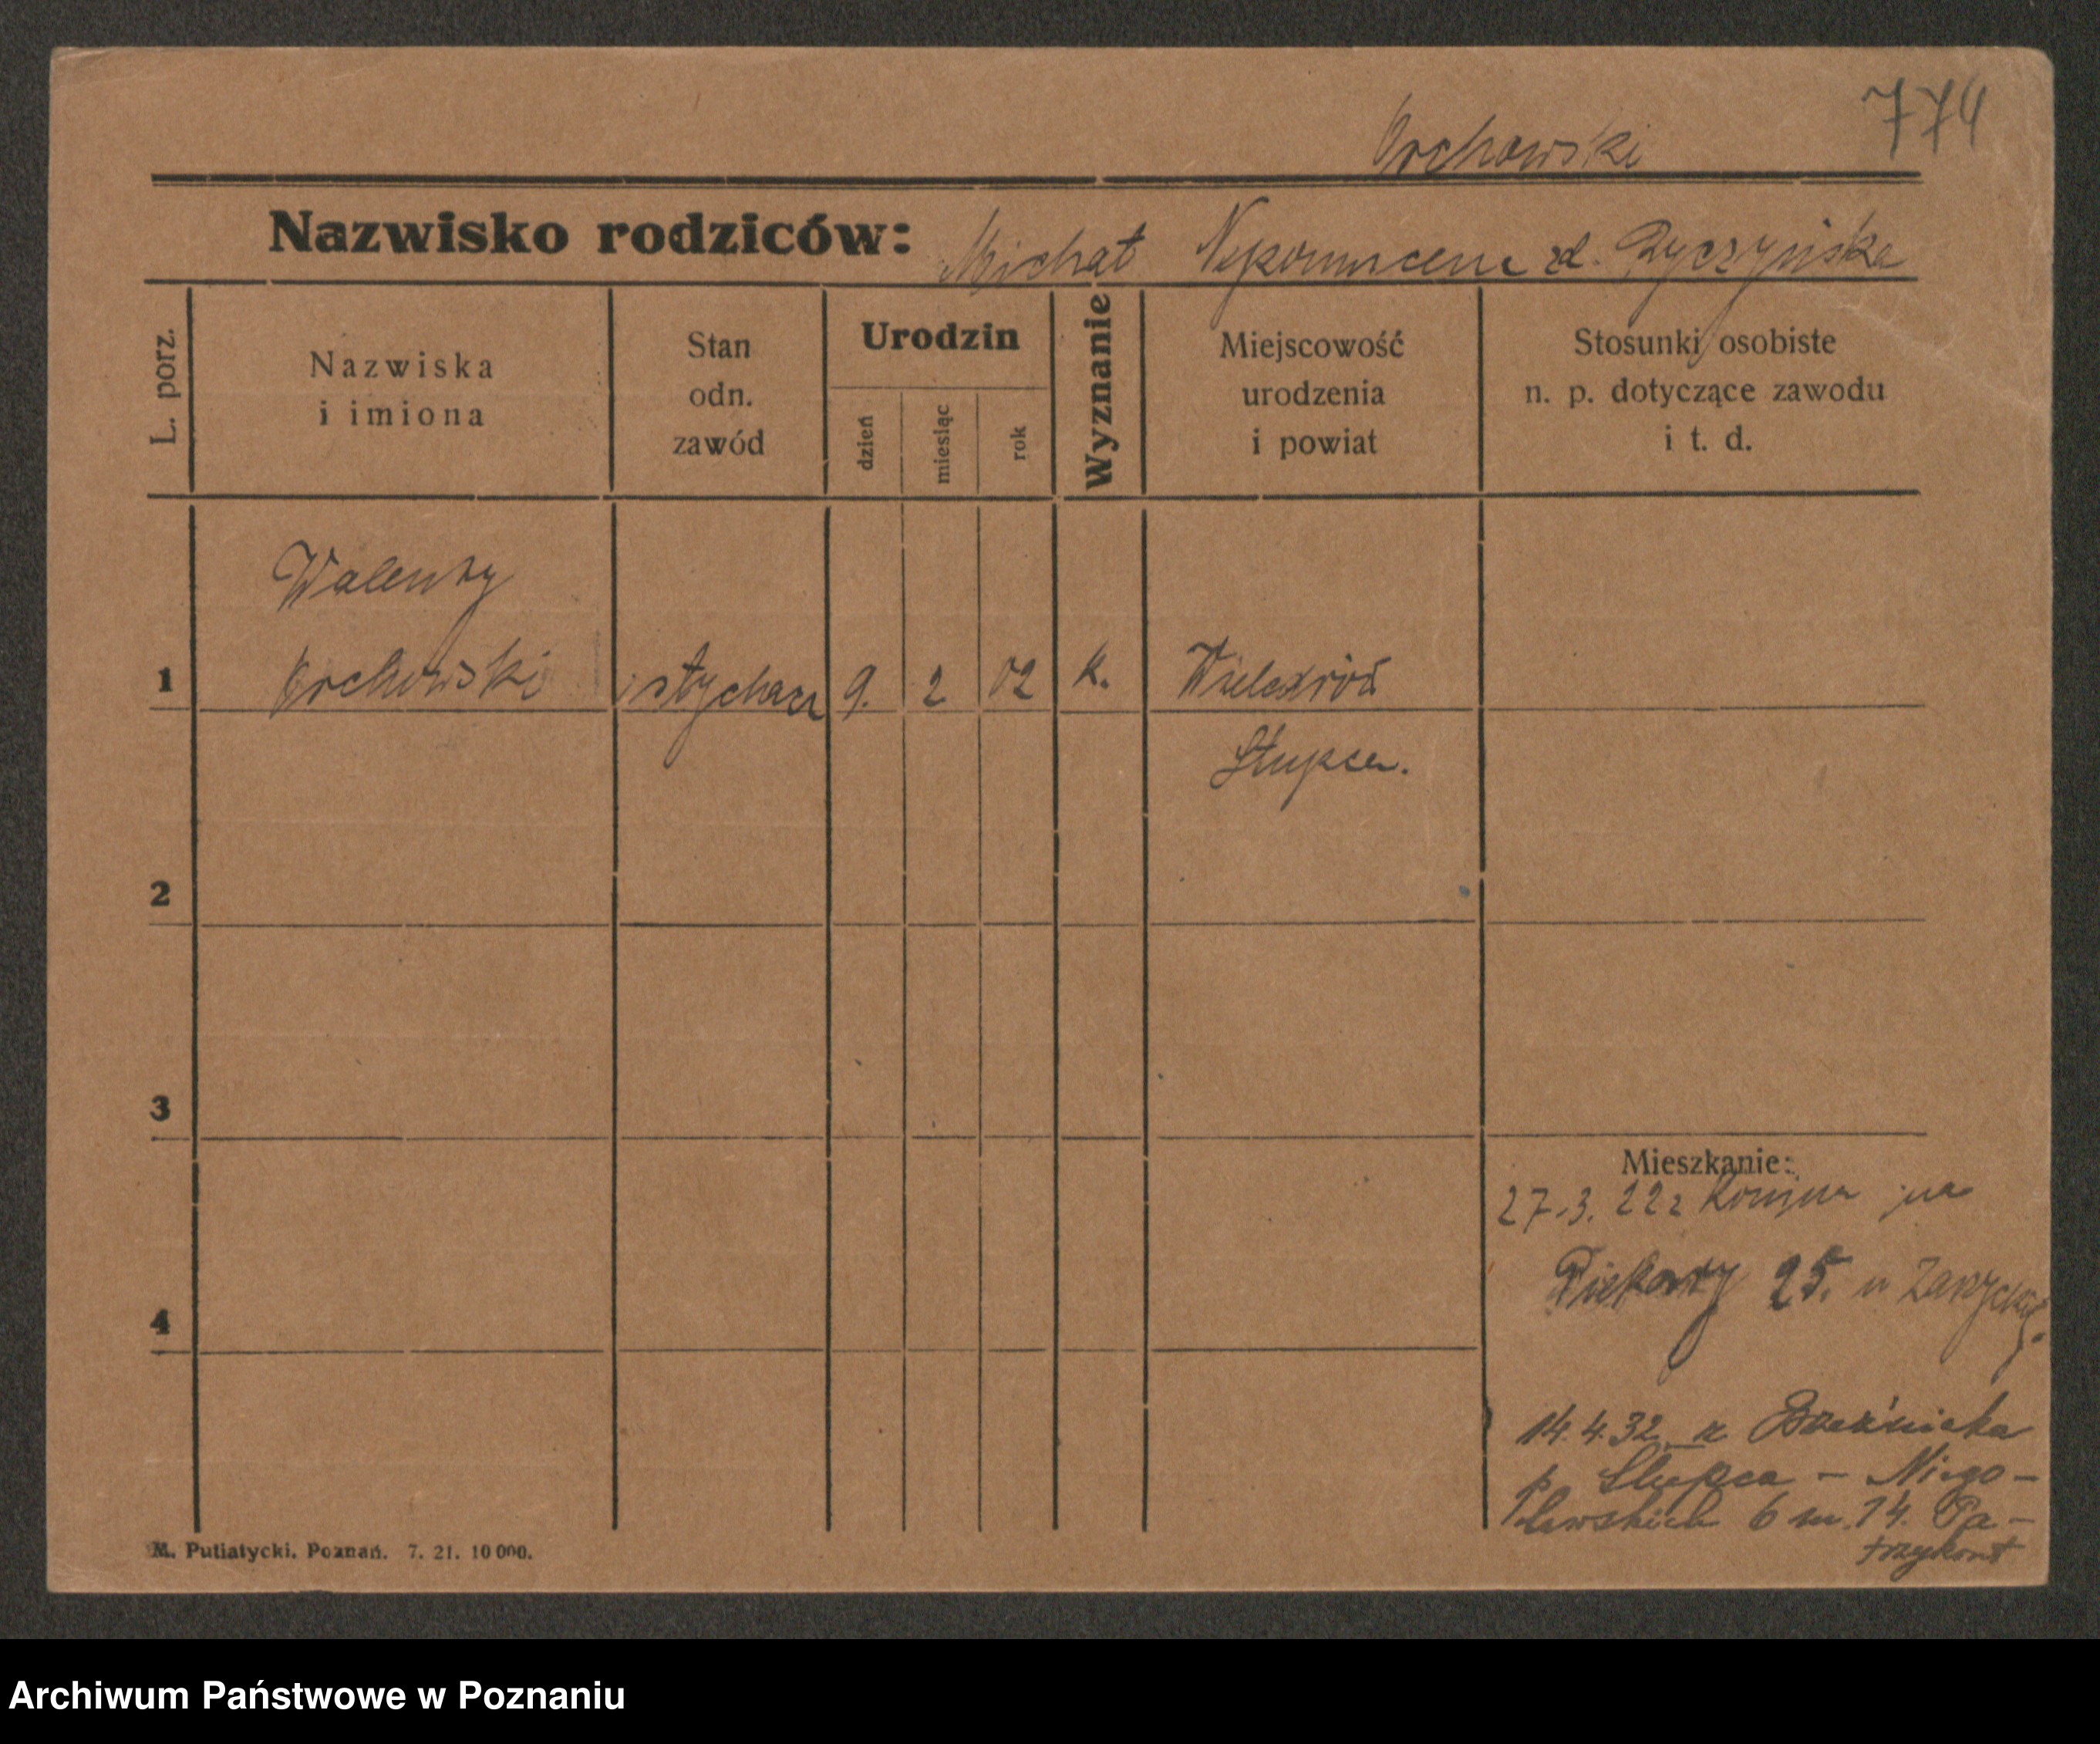 774
Orchowski
Nazwisko rodziców: Michał Nepomucena zd. Ryczyńska
L. porz.
Nazwiska
i imiona
Stan
odn.
zawód
Urodzin
dzień
miesiąc
rok
Wyznanie
Miejscowość
urodzenia
i powiat
Stosunki osobiste
n. p. dotyczące zawodu
i t. d.
Walenty
1 Orchowski 9. 2 02 k.
Słupca.
2
3
Mieszkanie:
27.3.22 z Konina na
4 Piekary 25. u
14.4.32 z
p. Słupca – Niego–
lewskich 6 m. 14. Pa–
trzykont
M. Putiatycki. Poznań. 7. 21. 10 000.
Archiwum Państwowe w Poznaniu